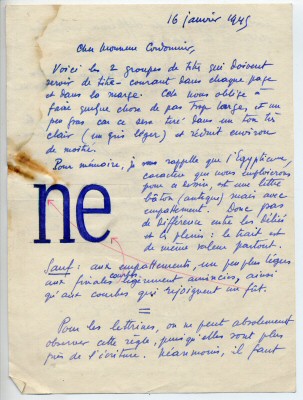 16 janvier 1945
Cher Monsieur Cordonnier,
Voici les 2 groupes de titres qui doivent
servir de titre-courant dans chaque page
et dans la marge. Cela nous oblige à
faire quelque chose de pas trop large, et un
peu gras car ce sera tiré dans un ton très
clair (un gris léger) et réduit environ
de moitié.
Pour mémoire, je vous rappelle que l'Egyptienne,
caractère que nous emploierons
pour ce travail, est une lettre
bâton (antique) mais avec
empattement. Donc pas
de différence entre les déliés
et les pleins : le trait est
de même valeur partout.
ne
Sauf : aux empattements, un peu plus légers
aux finales courbes légèrement amincies, ainsi
qu'aux courbes qui rejoignent un fût.
=
Pour les lettrines, on ne peut absolument
observer cette règle, puisqu'elles sont plus
près de l'écriture. Néanmoins, il faut